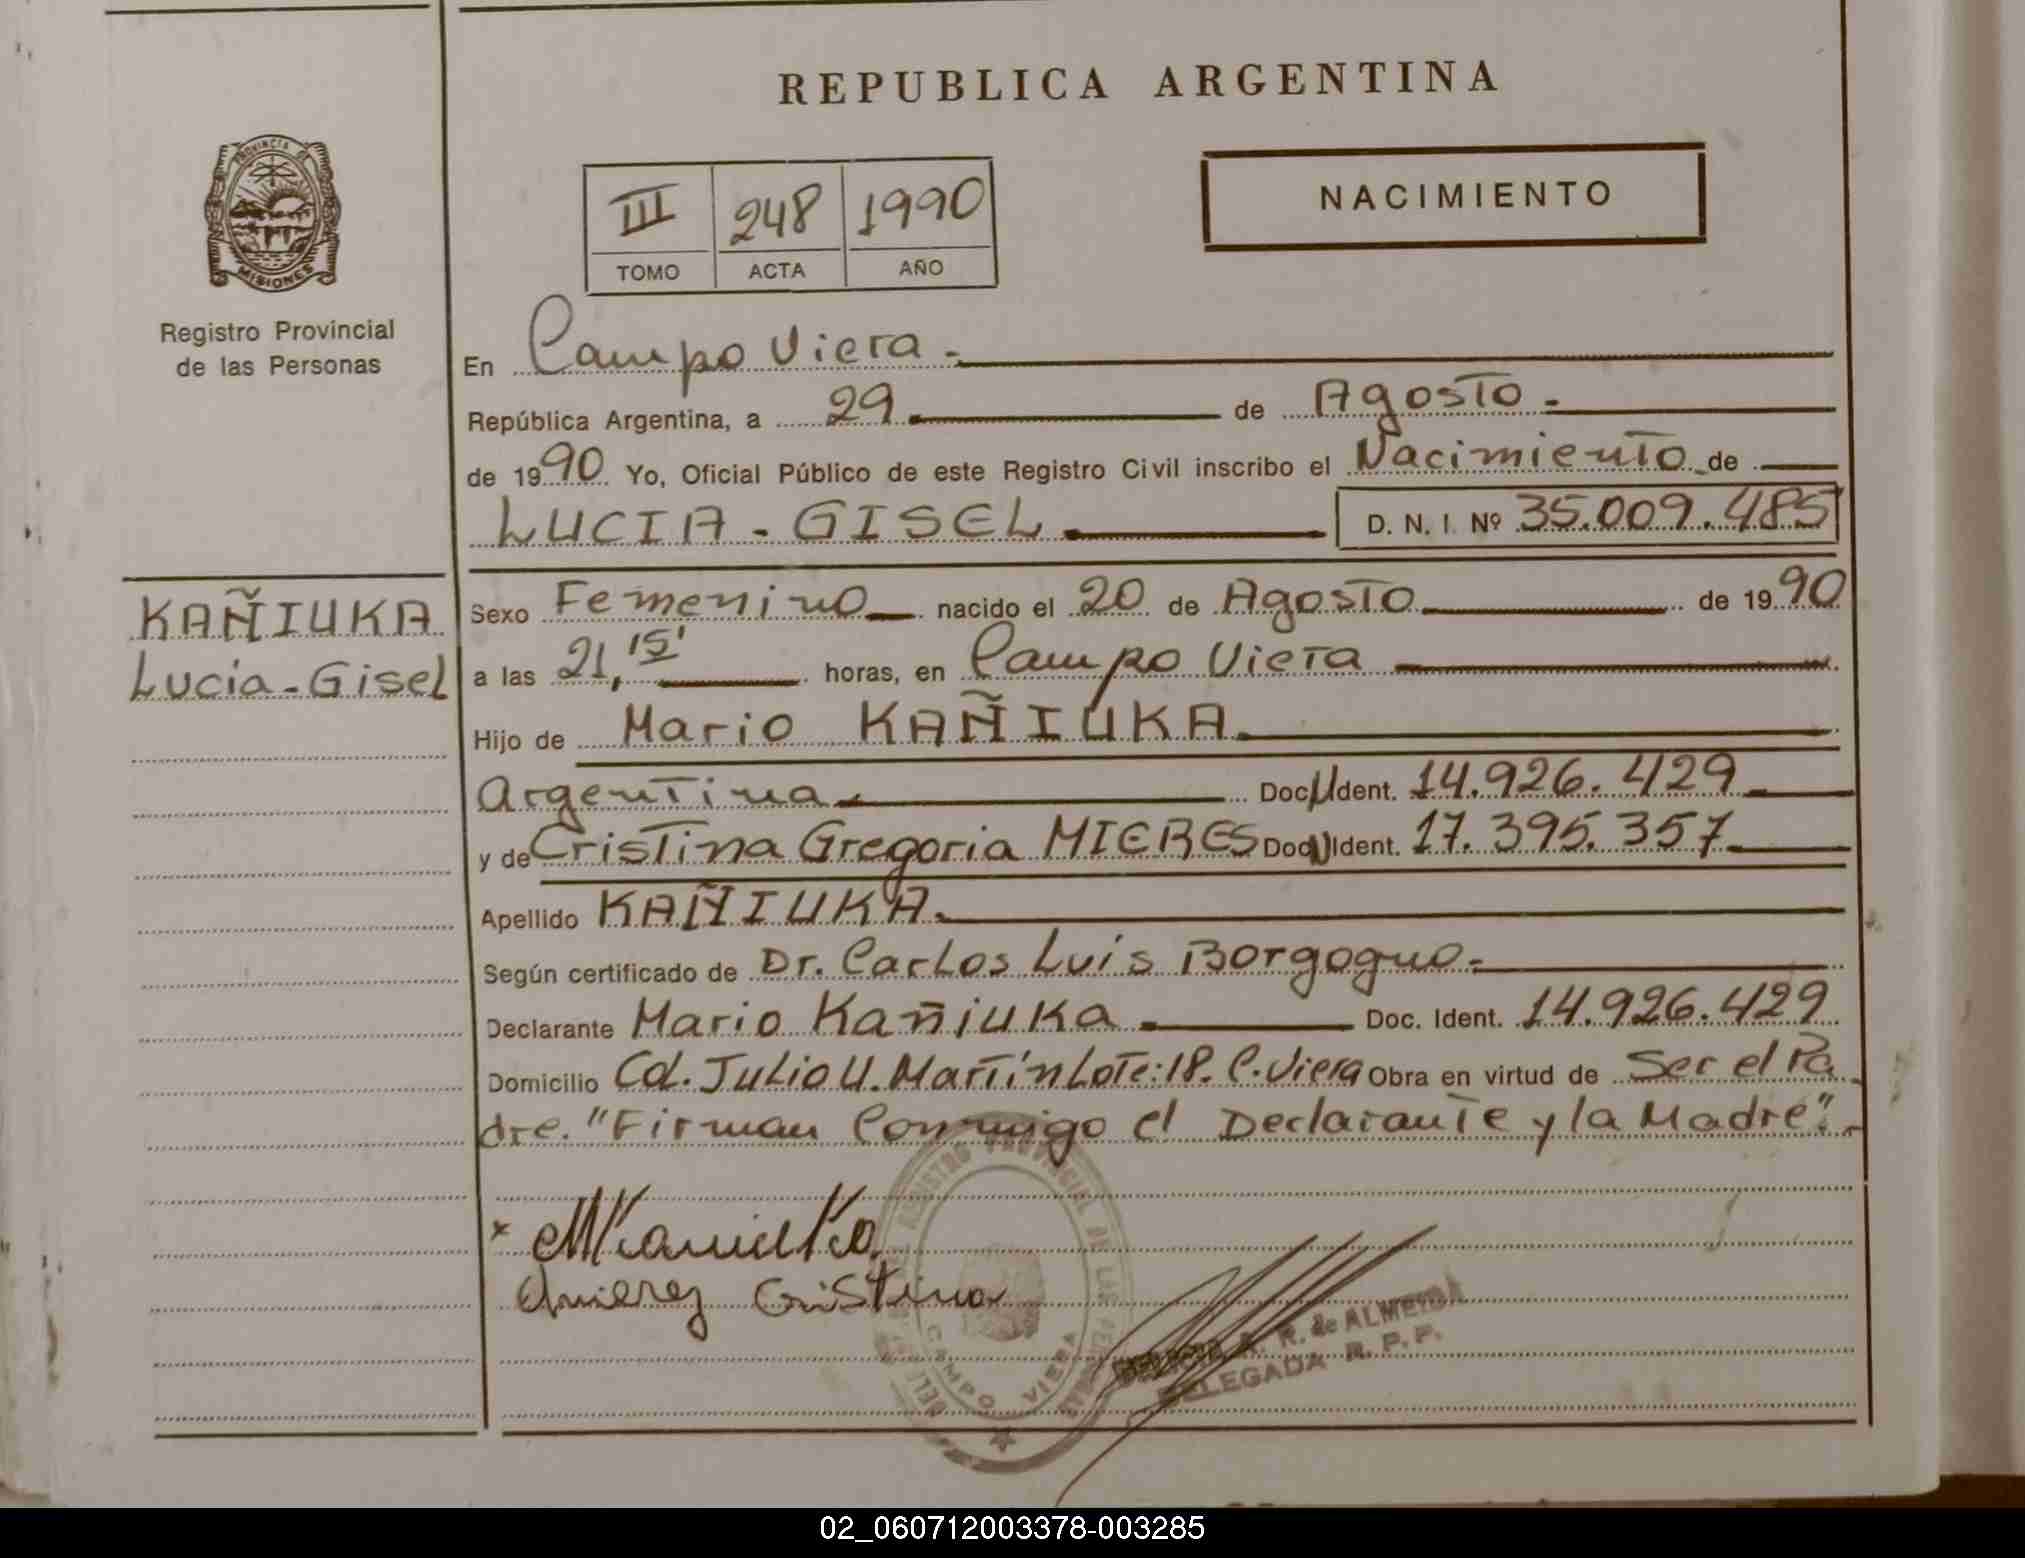 REPUBLICA ARGENTINA
PROVINCIA DE
MISIONES
Registro Provincial
de las Personas
III 248 1990
TOMO ACTA AÑO
NACIMIENTO
En Campo Viera.-
República Argentina, a 29 de Agosto.-
de 1990 Yo, Oficial Público de este Registro Civil inscribo el Nacimiento de
LUCIA-GISEL D. N. I. Nº 35.009.485
KAÑIUKA
Lucia-Gisel
Sexo Femenino nacido el 20 de Agosto de 1990
a las 21,15' horas, en Campo Viera
Hijo de Mario KAÑIUKA.
Argentina.- Doc. Ident. 14.926.429
y de Cristina Gregoria MIERES Doc. Ident. 17.395.357
Apellido KAÑIUKA.
Según certificado de Dr. Carlos Luis Borgogno.-
Declarante Mario Kañiuka.- Doc. Ident. 14.926.429
Domicilio Cd. Julio U. Martín Lote: 18. C. Viera Obra en virtud de Ser el Pa
dre. "Firman Conmigo el Declarante y la Madre".-
REGISTRO PROVINCIAL DE LAS
CAMPO VIERA
MKaniuka
Mieres Cristina
A. R. de ALMEIDA
DELEGADA R. P. P.
02_060712003378-003285